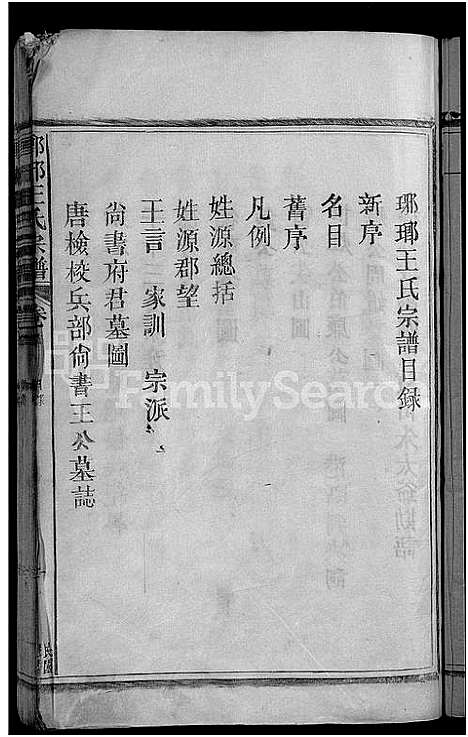 瑯琊王氏宗譜目錄
新序
名目
舊序
凡例
姓源總括
姓源郡望
王言 家訓 宗派
尚書府君墓圖
唐檢校兵部尚書王公墓誌
瑯琊王氏宗譜
FamilySearch